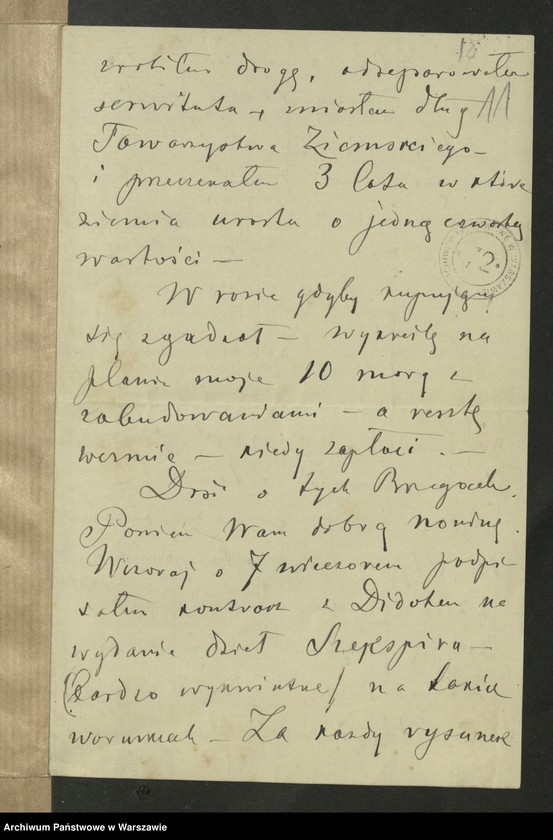 18
zrobiłem drogę, odseparowałem
serwituta, miałem dług 11
Towarzystwa Ziemskiego –
i przeczekałem 3 lata w które
ziemia urosła o jedną czwartą
wartości –
W razie gdyby
się zgadzał – wykreślę na
planie moje 10 morg z
zabudowaniami – a resztę
weźmie – kiedy zapłaci. –
Dość o tych
Powiem Wam dobrą nowinę.
Wczoraj o 7 wieczorem podpi
sałem kontrakt z Didotem na
wydanie dzieł Szekspira –
(bardzo wykwintne) na takich
warunkach – Za każdy rysunek
2
Archiwum Państwowe w Warszawie